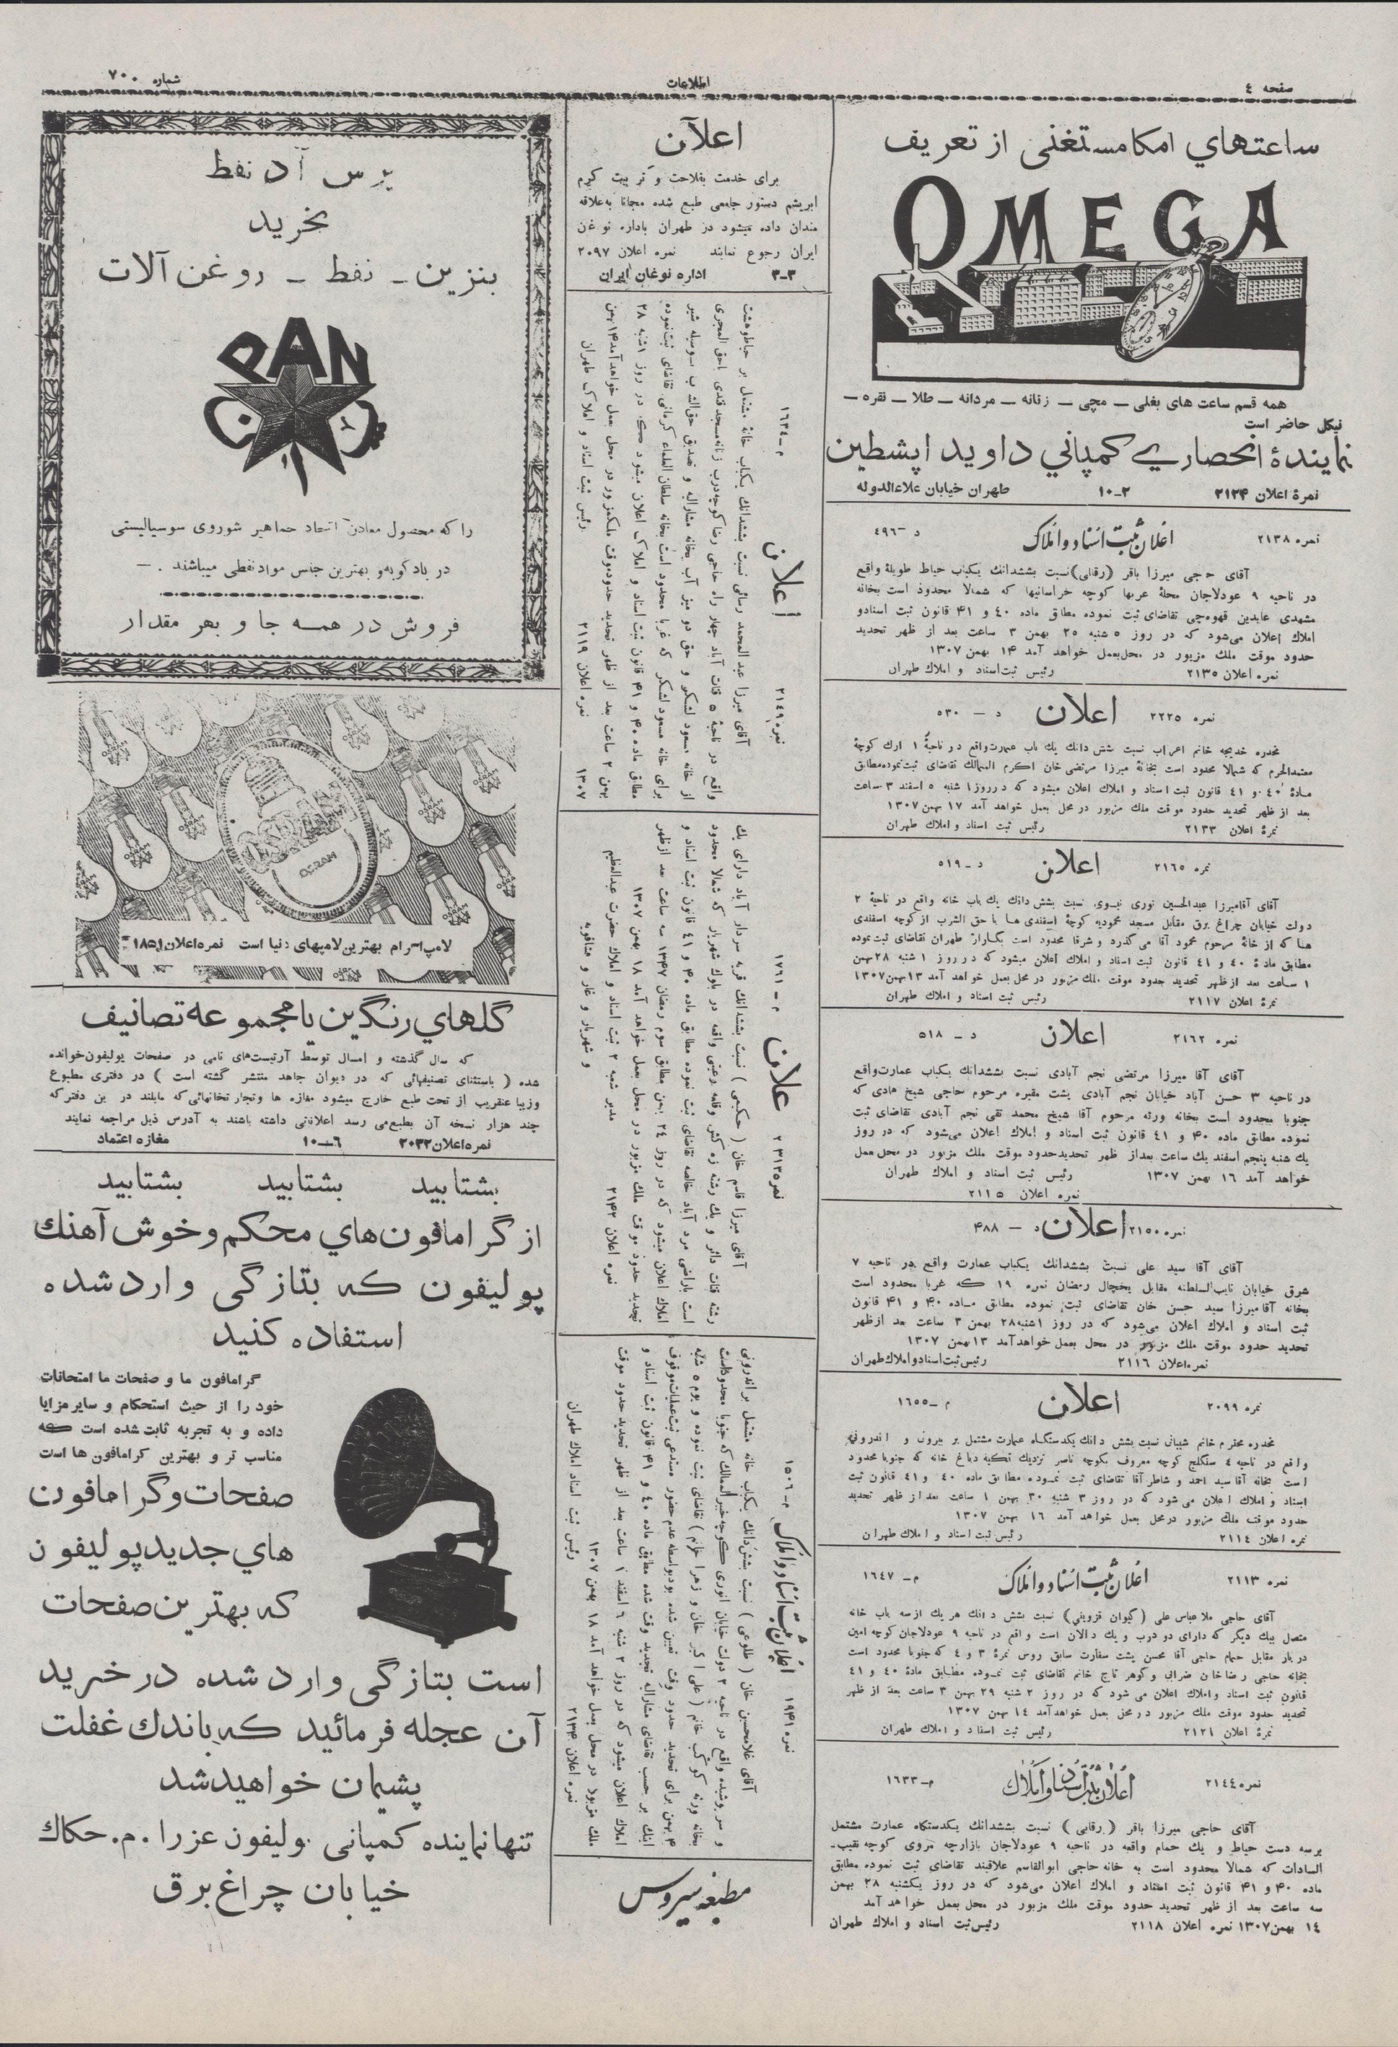 صفحه ٤
اطلاعات
شماره ٧٠٠
ساعتهاي امكا مستغنی از تعریف
OMEGA
همه قسم ساعت های بغلی ــ مچی ــ زنانه ــ مردانه ــ طلا ــ نقره ــ
نیکل حاضر است
نمایندهٔ انحصاري كمپاني داوید اپشطین
نمرهٔ اعلان ۲۱۲۴ ۲-۱۰ طهران خیابان علاءالدوله
نمره ۲۱۳۸ اعلان ثبت اسناد و املاک د – ۴۹۶
آقای حاجی میرزا باقر (رقابی) نسبت بششدانك یکباب حیاط طویلهٔ واقع
در ناحیه ۹ عودلاجان محلهٔ عربها کوچه خراسانیها که شمالا محدود است بخانه
مشهدی عابدین قهوه‌چی تقاضای ثبت نموده مطابق ماده ۴۰ و ۴۱ قانون ثبت اسناد و
املاك اعلان می‌شود که در روز ۵ شنبه ۲۵ بهمن ۳ ساعت بعد از ظهر تحدید
حدود موقت ملك مزبور در محل بعمل خواهد آمد ۱۴ بهمن ۱۳۰۷
نمره اعلان ۲۱۳۵ رئیس ثبت اسناد و املاك طهران
نمره ۲۲۲۵ اعلان د – ۵۳۰
مخدره خدیجه خانم اعراب نسبت بشش دانك یك باب عمارت واقع در ناحیهٔ ۱ ارك کوچهٔ
معتمدالحرم که شمالا محدود است بخانهٔ میرزا مرتضی خان اکرم الممالك تقاضای ثبت نموده مطابق
مادهٔ ۴۰ و ٤١ قانون ثبت اسناد و املاك اعلان میشود که در روز ۱ شنبه ۵ اسفند ۳ ساعت
بعد از ظهر تحدید حدود موقت ملك مزبور در محل بعمل خواهد آمد ۱۷ بهمن ۱۳۰۷
نمرهٔ اعلان ۲۱۳۳ رئیس ثبت اسناد و املاك طهران
نمره ۲۱۶۵ اعلان د – ۵۱۹
آقای آقا میرزا عبدالحسین نوری نبوی نسبت بشش دانك یك باب خانه واقع در ناحیهٔ ۲
دولت خیابان چراغ برق مقابل مسجد محمودیه کوچهٔ اسفندی ها با حق الشرب از کوچه اسفندی
ها که از خانهٔ مرحوم محمود آقا می گذرد و شرقا محدود است بگاراژ طهران تقاضای ثبت نموده
مطابق مادهٔ ۴۰ و ٤١ قانون ثبت اسناد و املاك اعلان میشود که در روز ۱ شنبه ۲۸ بهمن
۱ ساعت بعد از ظهر تحدید حدود موقت ملك مزبور در محل بعمل خواهد آمد ۱۳ بهمن ۱۳۰۷
نمرهٔ اعلان ۲۱۱۷ رئیس ثبت اسناد و املاك طهران
نمره ۲۱۶۲ اعلان د – ۵۱۸
آقای آقا میرزا مرتضی نجم آبادی نسبت بششدانك یکباب عمارت واقع
در ناحیه ۳ حسن آباد خیابان نجم آبادی پشت مقبره مرحوم حاجی شیخ هادی که
جنوبا محدود است بخانه ورثه مرحوم آقا شیخ محمد تقی نجم آبادی تقاضای ثبت
نموده مطابق ماده ۴۰ و ٤١ قانون ثبت اسناد و املاك اعلان می‌شود که در روز
یك شنبه پنجم اسفند یك ساعت بعد از ظهر تحدید حدود موقت ملك مزبور در محل عمل
خواهد آمد ۱۶ بهمن ۱۳۰۷ رئیس ثبت اسناد و املاك طهران
نمره اعلان ۲۱۱۵
نمره ۲۱۵۰ اعلان د – ۴۸۸
آقای آقا سید علی نسبت بششدانك یکباب عمارت واقع در ناحیه ۷
شرق خیابان نایب‌السلطنه مقابل یخچال رمضان نمره ۱۹ که غربا محدود است
بخانه آقا میرزا سید حسن خان تقاضای ثبت نموده مطابق ماده ۴۰ و ۴۱ قانون
ثبت اسناد و املاك اعلان می‌شود که در روز ۱ شنبه ۲۸ بهمن ۳ ساعت بعد از ظهر
تحدید حدود موقت ملك مزبور در محل بعمل خواهد آمد ۱۳ بهمن ۱۳۰۷
نمره اعلان ۲۱۱۶ رئیس ثبت اسناد و املاك طهران
نمره ۲۰۹۹ اعلان م – ۱۶۵۵
مخدره محترم خانم شیبانی نسبت بشش دانك یکدستگاه عمارت مشتمل بر بیرونی و اندرونی
واقع در ناحیه ٤ سنگلج کوچه معروف بکوچه ناصر نزدیك تکیه دباغ خانه که جنوبا محدود
است بخانه آقا سید احمد و شاطر آقا تقاضای ثبت نموده مطابق ماده ۴۰ و ٤١ قانون ثبت
اسناد و املاك اعلان می شود که در روز ۳ شنبه ۳۰ بهمن ۱ ساعت بعد از ظهر تحدید
حدود موقت ملك مزبور در محل بعمل خواهد آمد ۱۶ بهمن ۱۳۰۷
نمره اعلان ۲۱۱٤ رئیس ثبت اسناد و املاك طهران
نمره ۲۱۱۳ اعلان ثبت اسناد و املاک م – ۱۶۴۷
آقای حاجی ملا عباس علی (کیوان قزوینی) نسبت بشش دانك هر یك از سه باب خانه
متصل بیك دیگر که دارای دو درب و یك دالان است واقع در ناحیه ۹ عودلاجان کوچه امین
دربار مقابل حمام حاجی آقا محسن پشت سفارت سابق روس نمرهٔ ۳ و ٤ که جنوبا محدود است
بخانه حاجی رضا خان ضرابی و گوهر تاج خانم تقاضای ثبت نموده مطابق مادهٔ ۴۰ و ٤١
قانون ثبت اسناد و املاك اعلان می شود که در روز ۲ شنبه ۲۹ بهمن ۳ ساعت بعد از ظهر
تحدید حدود موقت ملك مزبور در محل بعمل خواهد آمد ۱٤ بهمن ۱۳۰۷
نمرهٔ اعلان ۲۱۲۱ رئیس ثبت اسناد و املاك طهران
نمره ۲۱٤٤ اعلان ثبت اسناد و املاک م – ۱۶۳۳
آقای حاجی میرزا باقر (رقابی) نسبت بششدانك یکدستگاه عمارت مشتمل
برسه دست حیاط و یك حمام واقعه در ناحیه ۹ عودلاجان بازارچه مروی کوچه نقیب
السادات که شمالا محدود است به خانه حاجی ابوالقاسم علاقبند تقاضای ثبت نموده مطابق
ماده ۴۰ و ۴۱ قانون ثبت اسناد و املاك اعلان می‌شود که در روز یکشنبه ۲۸ بهمن
سه ساعت بعد از ظهر تحدید حدود موقت ملك مزبور در محل بعمل خواهد آمد
۱۴ بهمن ۱۳۰۷ نمره اعلان ۲۱۱۸ رئیس ثبت اسناد و املاك طهران
اعلان
برای خدمت بفلاحت و تربیت کرم
ابریشم دستور جامعی طبع شده مجانا به علاقه
مندان داده میشود در طهران باداره نوغان
ایران رجوع نمایند نمره اعلان ۲۰۹۷
۳-۳ اداره نوغان ایران
نمره ۲۱۴۹ اعلان م – ۱۶۳٤
آقای میرزا عبدالمحمد رسائی نسبت بششدانك یکباب خانهٔ مشتمل بر حیاط و هشت
واقع در ناحیهٔ ۵ قنات آباد چهار راه حاجی رضا کوچه درب زنانه مسجد قندی باحق المجری
از خانه مسعود لشکر و حق دو ممر آب بخانه مشارالیه و تصدیق حق‌الك ب بوسیله شیر
برای خانه مسعود لشکر که غربا محدود است بخانه سلطان العلماء کرمانی تقاضای ثبت نموده
مطابق ماده ۴۰ و ۴۱ قانون ثبت اسناد و املاك اعلان میشود که در روز ۱ شنبه ۲۸
بهمن ۲ ساعت بعد از ظهر تحدید حدود موقت ملك مزبور در محل بعمل خواهد آمد ۱۴ بهمن
۱۳۰۷ نمره اعلان ۲۱۱۹ رئیس ثبت اسناد و املاك طهران
اعلان م – ۱۷۶۱
آقای میرزا قاسم خان (حکیمی) نسبت بششدانك قریه سردار آباد دارای یك
رشته قنات دائر و یك رشته زه کش واقعه در بلوك شهریار که شمالا محدود
است باراضی مرد آباد خالصه تقاضای ثبت نموده مطابق ماده ۴۰ و ٤١ قانون ثبت اسناد و
املاك اعلان میشود که در روز ۲٤ بهمن مطابق سوم رمضان ۱۳۴۷ سه ساعت بعد از ظهر
تحدید حدود موقت ملك مزبور در محل بعمل خواهد آمد ۱۸ بهمن ۱۳۰۷
نمره اعلان ۲۱۴۲ مدیر شعبه ۲ ثبت اسناد و املاك حضرت عبدالعظیم
و شهریار و غار و فشافویه
نمره ۱۹۴۱ اعلان ثبت اسناد و املاک م – ۱۵۰۶
آقای غلامحسین خان (طلوعی) نسبت بشش‌دانك یکباب خانه مشتمل بر اندرونی
و سرپوشیده واقع در ناحیه ۲ دولت خیابان انوری کوچه خبیرالممالك که جنوبا محدود است
بخانه ورثه کوکب خانم (علی اکبر خان و زهرا خانم) تقاضای ثبت نموده و یوم ۵ شنبه
۴ بهمن برای تحدید حدود وقت تعیین شده بود بواسطه عدم حضور مستدعی ثبت عملیات موقوف
اینك بر حسب تقاضای مشارالیه تجدید وقت شده مطابق ماده ۴۰ و ۴۱ قانون ثبت اسناد و
املاك اعلان میشود که در روز ۲ شنبه ۶ اسفند ۱ ساعت بعد از ظهر تحدید حدود موقت
ملك مزبور در محل بعمل خواهد آمد ۱۸ بهمن ۱۳۰۷
نمره اعلان ۲۱۳۴ رئیس ثبت اسناد املاك طهران
مطبعه سیروس
پرس آذ نفط
بخرید
بنزین ــ نفط ــ روغن آلات
PAN
را که محصول معادن اتحاد جماهیر شوروی سوسیالیستی
در بادکوبه و بهترین جنس مواد نفطی میباشند . ــ
فروش در همه جا و بهر مقدار
OSRAM
OSRAM
لامپ اسرام بهترین لامپهای دنیا است نمره اعلان ۱۸۵۱
گلهاي رنگین یا مجموعه تصانیف
که سال گذشته و امسال توسط آرتیست‌های نامی در صفحات پولیفون خوانده
شده (باستثنای تصنیفهائی که در دیوان جاهد منتشر گشته است) در دفتری مطبوع
وزیبا عنقریب از تحت طبع خارج میشود مغازه ها وتجارتخانهائی‌که مایلند در این دفتر که
چند هزار نسخه آن بطبع می رسد اعلاناتی داشته باشند به آدرس ذیل مراجعه نمایند
نمره اعلان ۲۰۳۲ ۶-۱۰ مغازه اعتماد
بشتابید بشتابید بشتابید
از گرامافون هاي محکم و خوش آهنك
پولیفون که بتازگی وارد شده
استفاده کنید
گرامافون ما و صفحات ما امتحانات
خود را از حیث استحکام و سایر مزایا
داده و به تجربه ثابت شده است که
مناسب تر و بهترین گرامافون ها است
صفحات و گرامافون
هاي جدید پولیفون
که بهترین صفحات
است بتازگی وارد شده در خرید
آن عجله فرمائید که باندك غفلت
پشیمان خواهید شد
تنها نماینده کمپانی پولیفون عزرا . م . حکاك
خیابان چراغ برق